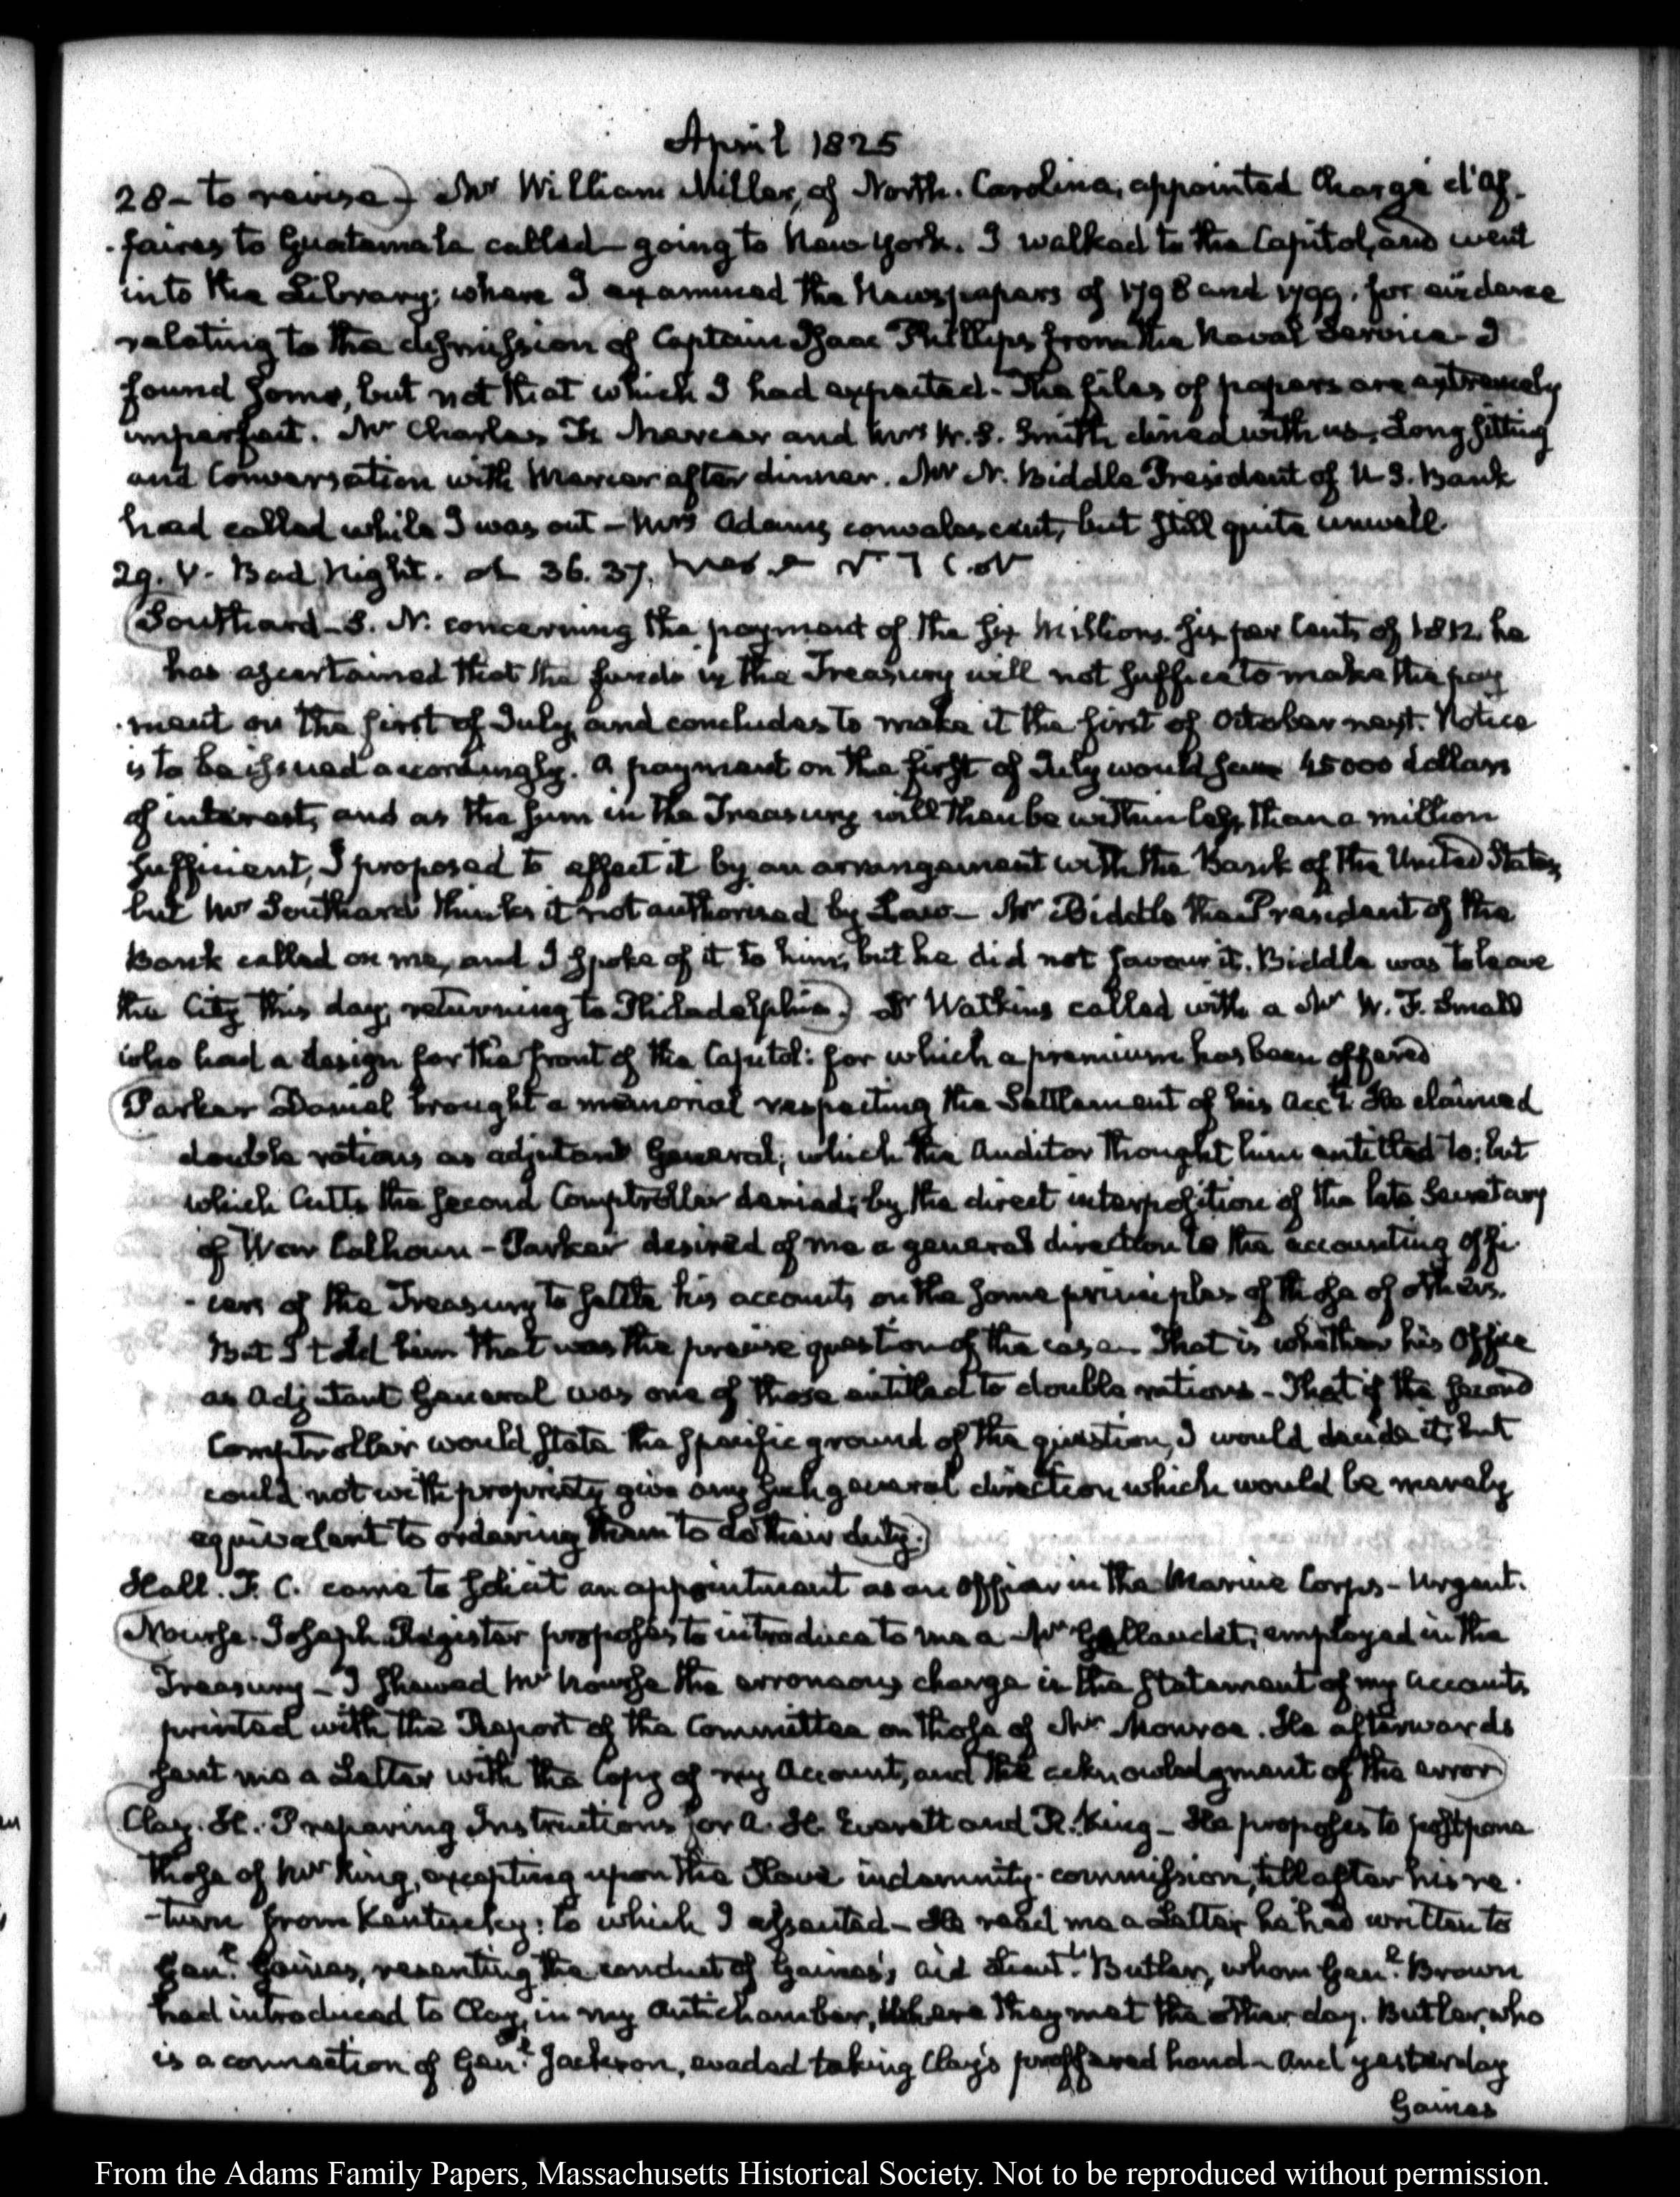 April 1825
28 – to revise) Mr William Miller, of North-Carolina, appointed Chargé d'Af-
-faires to Guatamala called – going to New York. I walked to the Capitol, and went
into the Library; where I examined the Newspapers of 1798 and 1799, for evidence
relating to the dismission of Captain Isaac Phillips from the Naval Service – I
found some, but not that which I had expected – The files of papers are extremely
imperfect. Mr Charles F. Mercer and Mrs W. S. Smith dined with us, Long sitting
and Conversation with Mercer after dinner. Mr N. Biddle President of U. S. Bank
had called while I was out – Mrs Adams convalescent, but still quite unwell.
29. V. Bad Night. 36. 37.
(Southard – S. N. concerning the payment of the six Millions six per Cents of 1812 he
has ascertained that the funds in the Treasury will not suffice to make the pay
-ment on the first of July, and concludes to make it the first of October next. Notice
is to be issued accordingly. A payment on the first of July would save 45000 dollars
of interest, and as the sum in the Treasury will then be within less than a million
sufficient, I proposed to effect it by an arrangement with the Bank of the United States,
but Mr Southard thinks it not authorised by Law – Mr Biddle the President of the
Bank called on me, and I spoke of it to him, but he did not favour it. Biddle was to leave
the City this day, returning to Philadelphia.) Dr Watkins called with a Mr W. F. Small
who had a design for the front of the Capitol: for which a premium has been offered
(Parker Daniel brought a memorial respecting the Settlement of his Acct. He claimed
double rations as adjutant General; which the Auditor thought him entitled to: but
which Cutts the second Comptroller denied; by the direct interposition of the late Secretary
of War Calhoun – Parker desired of me a general direction to the accounting offi
-cers of the Treasury to settle his accounts on the same principles of those of others.
But I told him that was the precise question of the case – That is whether his Office
as Adjutant General was one of those entitled to double rations – That if the second
Comptroller would state the specific ground of the question, I would decide it; but
could not with propriety give any such general direction which would be merely
equivalent to ordering them to do their duty.)
Hall. F. C. came to solicit an appointment as an Officer in the Marine Corps – Urgent.
(Nourse. Joseph Register proposes to introduce to me a Mr Gallaudet, employed in the
Treasury – I shewed Mr Nourse the erroneous charge in the statement of my Accounts
printed with the Report of the Committee on those of Mr Monroe. He afterwards
sent me a Letter with the Copy of my Account, and the acknowledgment of the error)
(Clay. H. Preparing Instructions for A. H. Everett and R. King – He proposes to postpone
those of Mr King, excepting upon the Slave indemnity-commission, till after his re-
-turn from Kentucky: to which I assented – He read me a Letter he had written to
Genl. Gaines, resenting the conduct of Gaines's aid Lieut. Butler, whom Genl. Brown
had introduced to Clay, in my Antichamber, where they met the other day. Butler, who
is a connection of Genl. Jackson, evaded taking Clay's proffered hand – And yesterday
Gaines
From the Adams Family Papers, Massachusetts Historical Society. Not to be reproduced without permission.